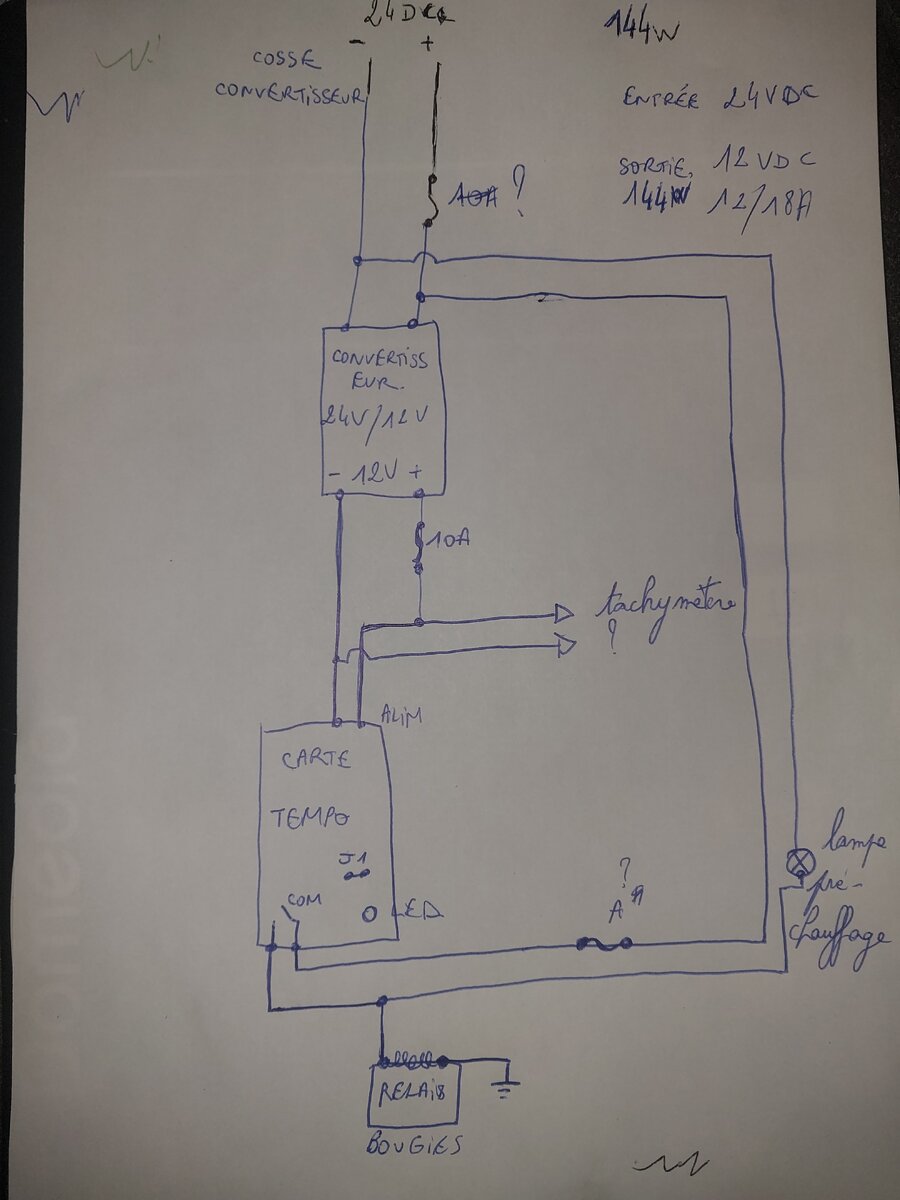 24DC
- +
144W
COSSE
CONVERTISSEUR
ENTRÉE 24VDC
SORTIE, 12VDC
144W 12/18A
10A ?
CONVERTISS
EUR.
24V/12V
- 12V +
10A
tachymètre
?
ALIM
CARTE
TEMPO
J1
COM
LED
?
A
lampe
pré-
chauffage
RELAIS
BOUGIES